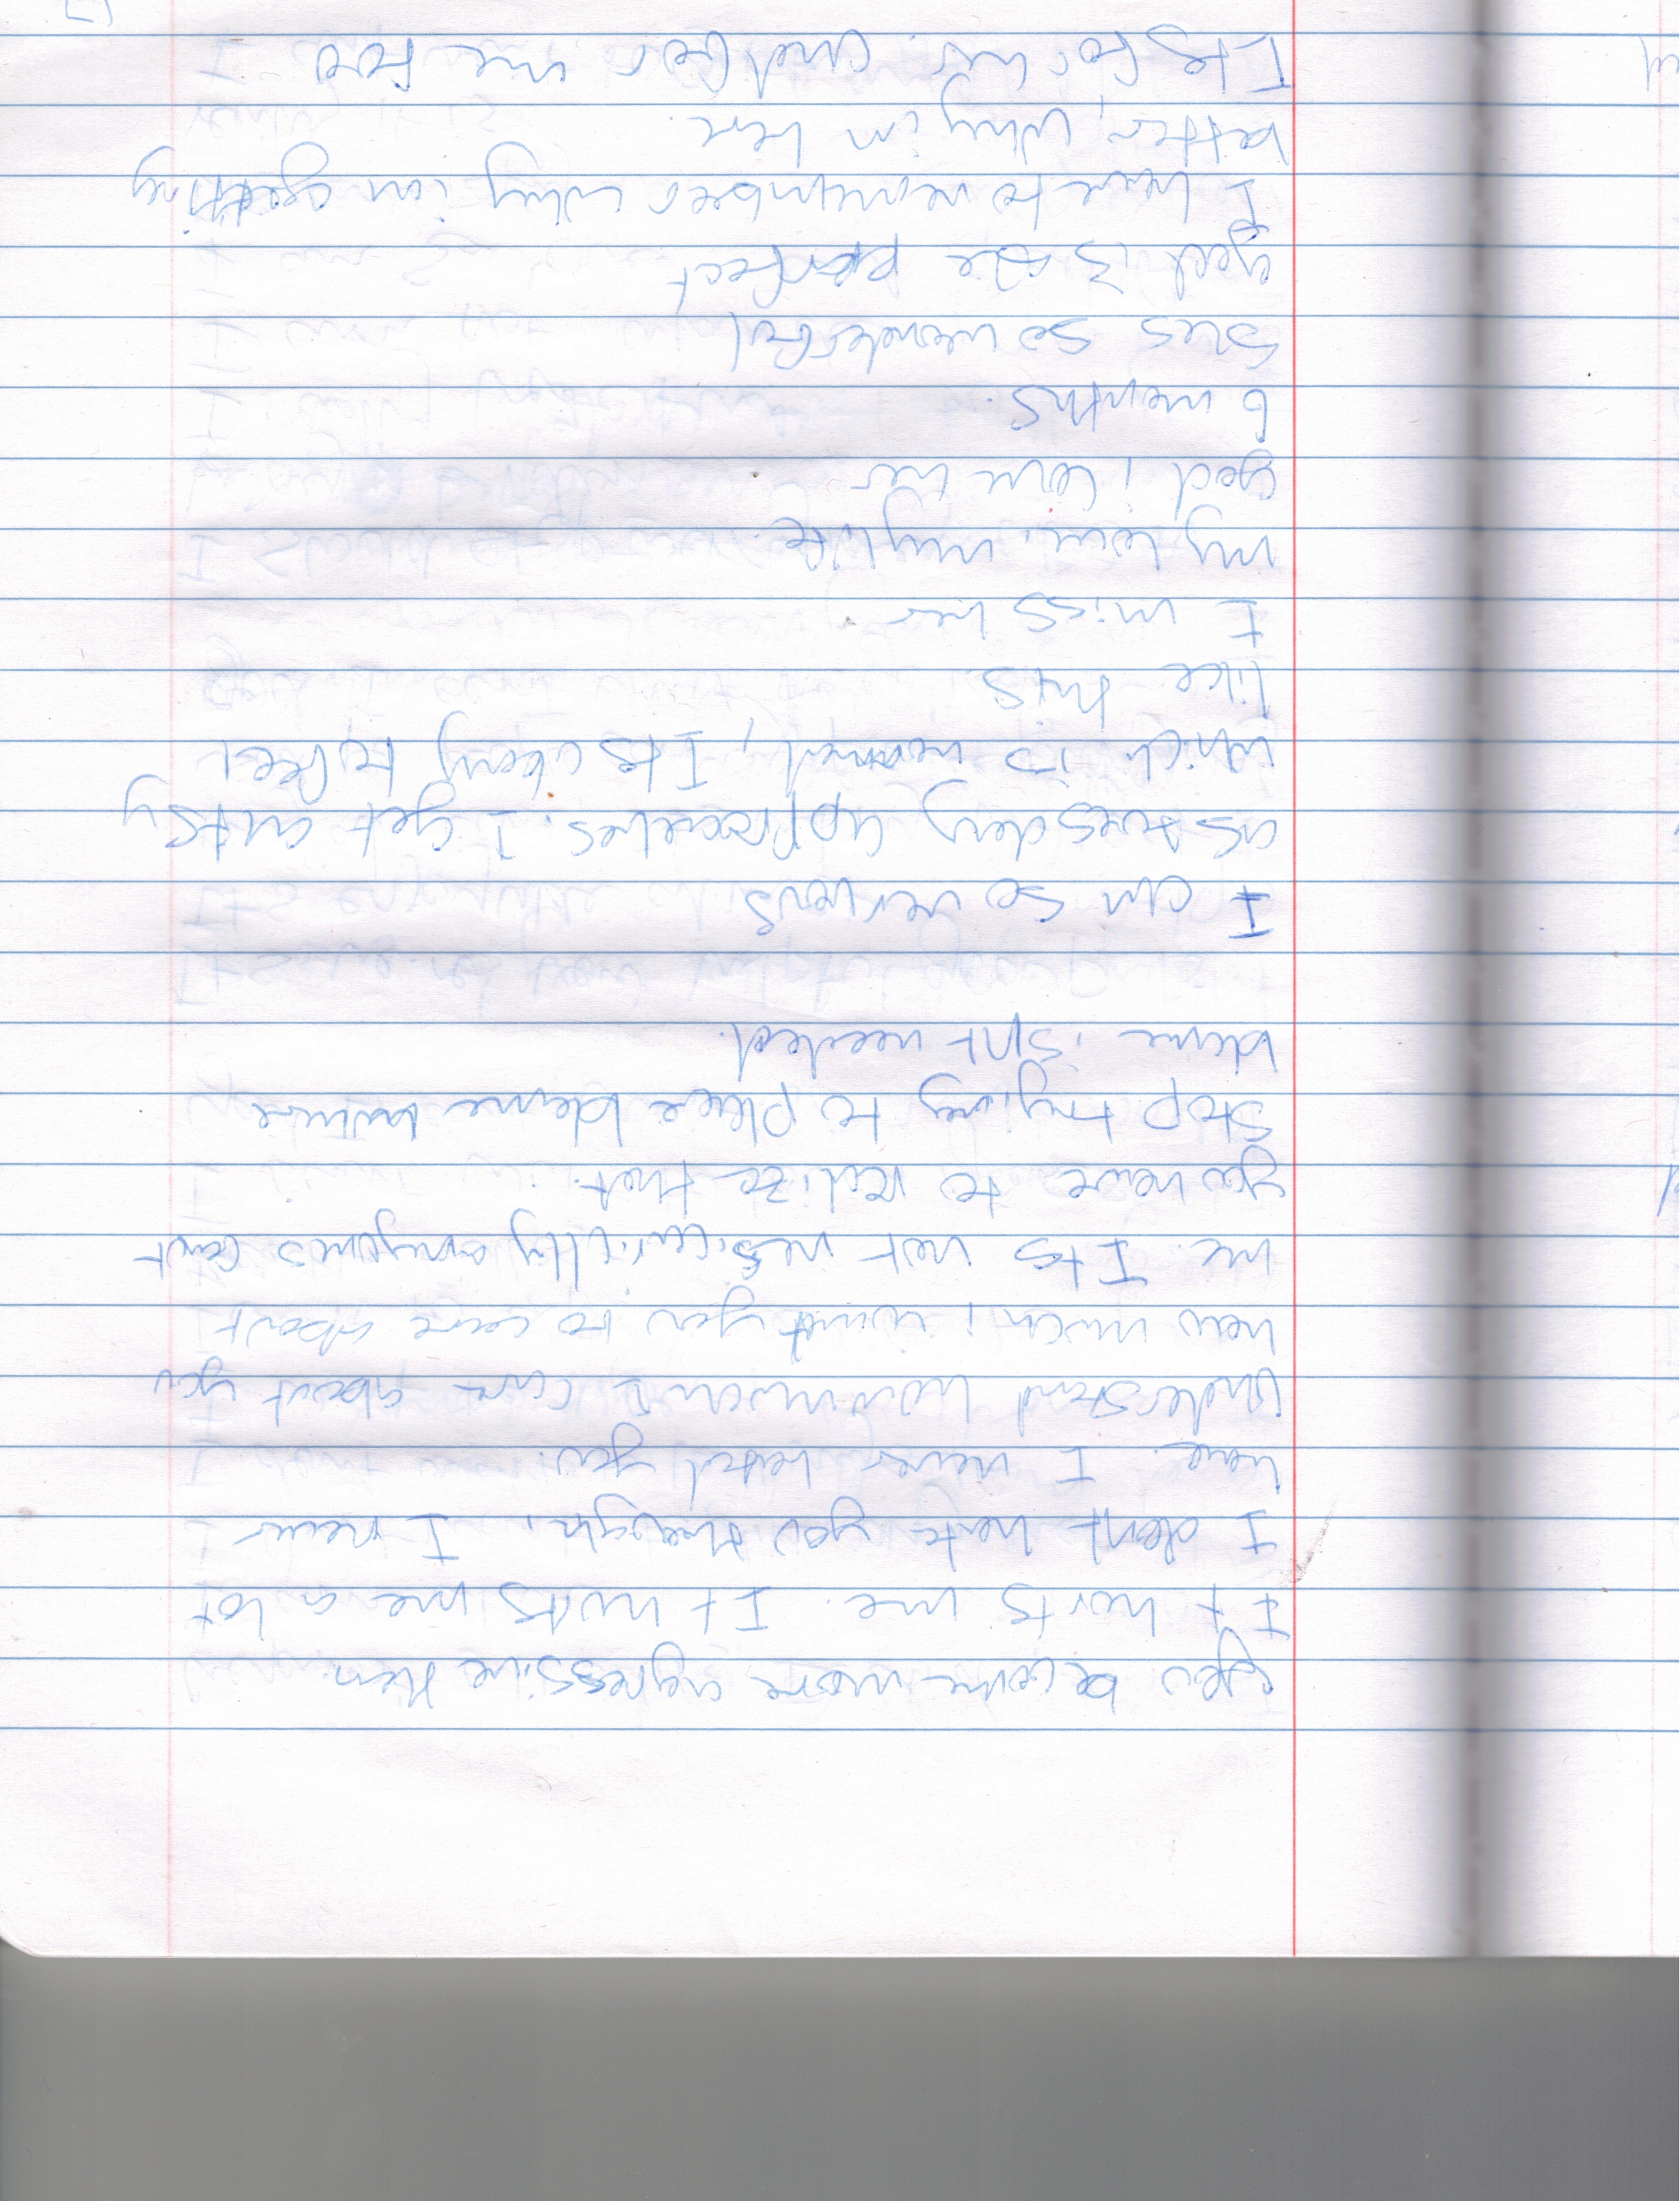 You become more agressive then
It hurts me. It hurts me a lot
I dont hate you though. I never
have. I never hated you.
Understand how much I care about you
how much i want you to care about
me. Its not nesicarilly anyones fault
you have to realize that.
Stop trying to place blame where
blame isnt needed.
I am so nervous
as tuesday approaches. I get antsy
which is normal, Its okay to feel
like this.
I miss her
my love. my life.
god i love her
6 months.
Shes so wonderful
god is she perfect
I have to remember why im getting
better, why im here
Its for us. and for me too